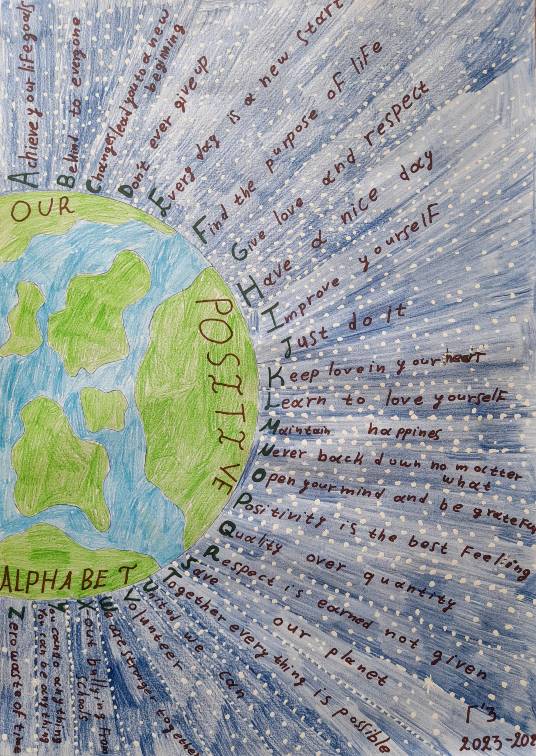 OUR
POSITIVE
ALPHABET
Achieve your life goals
Behind to everyone
Changes lead you to a new
beginning
Don't ever give up
Every day is a new start
Find the purpose of life
Give love and respect
Have a nice day
Improve yourself
Just do it
Keep love in your heart
Learn to love yourself
Maintain happines
Never back down no matter
what
Open your mind and be grateful
Positivity is the best feeling
Quality over quantity
Respect is earned not given
Save our planet
Together everything is possible
United we can
Volunteer
We are stronger together
X out bullying from
schools
You can do anything
You can be anything
Zero waste of time
Γ'3
2023-202